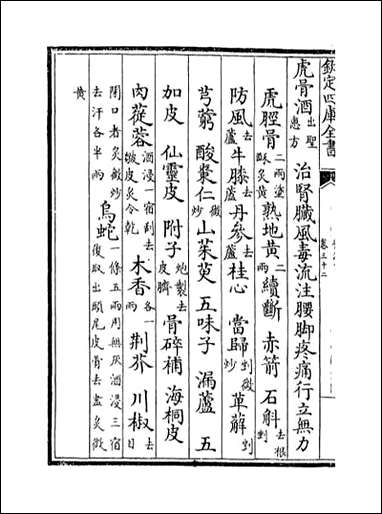 欽定四庫全書 卷三十二
虎骨酒出聖惠方 治腎臟風毒流注腰脚疼痛行立無力
虎脛骨二兩塗酥炙黄 熟地黄二兩 續斷 赤箭 石斛去根剉
防風去蘆 牛膝去蘆 丹參去蘆 桂心 當歸剉微炒 萆薢剉
芎藭 酸棗仁微炒 山茱萸 五味子 漏蘆 五
加皮 仙靈皮 附子炮製去皮臍 骨碎補 海桐皮
肉蓯蓉酒浸一宿刮去皴皮炙令乾 木香各一兩 荆芥 川椒去目
閉口者炙微炒去汗各半兩 烏蛇一條五兩用無灰酒浸三宿復取出頭尾皮骨去盡炙微
黄